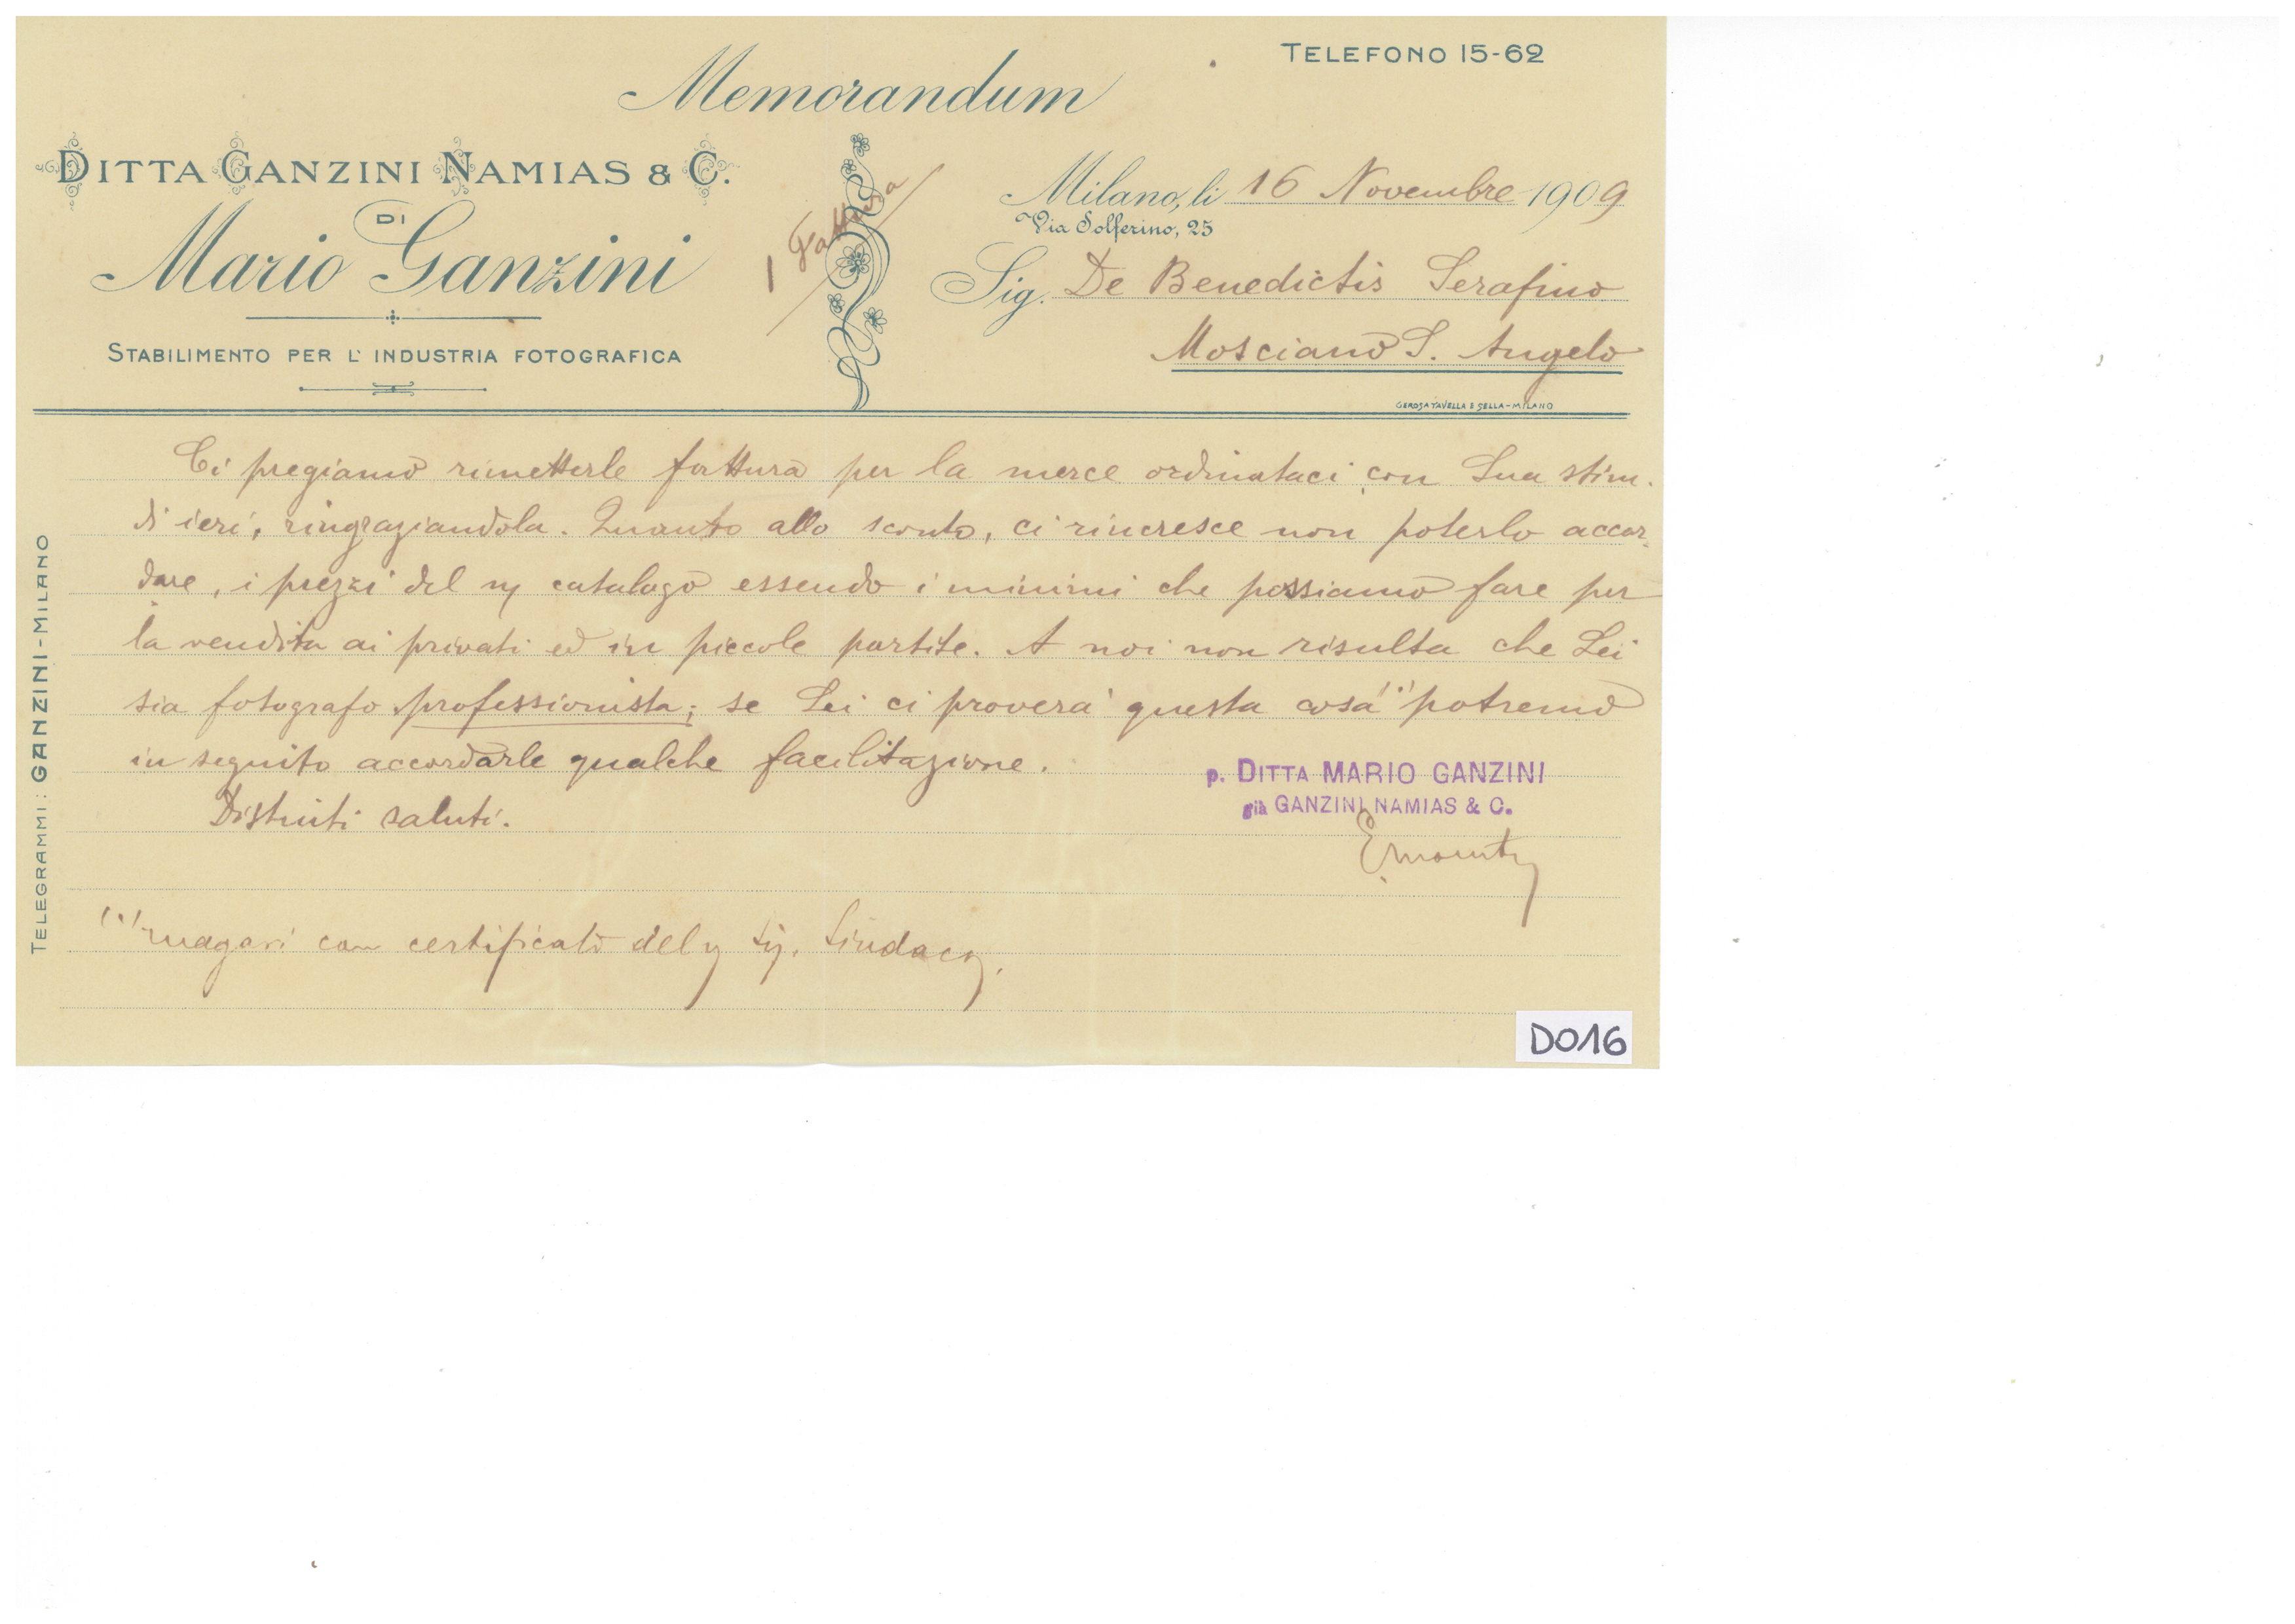 TELEFONO 15-62
Memorandum
DITTA GANZINI NAMIAS & C.
DI
Mario Ganzini
STABILIMENTO PER L'INDUSTRIA FOTOGRAFICA
1 Fattura
Milano, li 16 Novembre 1909
Via Solferino, 25
Sig. De Benedictis Serafino
Mosciano S. Angelo
GEROSA TAVELLA E SELLA-MILANO
TELEGRAMMI: GANZINI-MILANO
Ci pregiamo rimetterle fattura per la merce ordinataci con Sua stim.
di ieri, ringraziandola. Quanto allo sconto, ci rincresce non poterlo accor-
dare, i prezzi del n/ catalogo essendo i minimi che possiamo fare per
la vendita ai privati ed in piccole partite. A noi non risulta che Lei
sia fotografo professionista; se Lei ci proverà questa cosa (1) potremo
in seguito accordarle qualche facilitazione.
Distinti saluti.
p. DITTA MARIO GANZINI
già GANZINI NAMIAS & C.
(1) magari con certificato del Sig. Sindaco.
D016